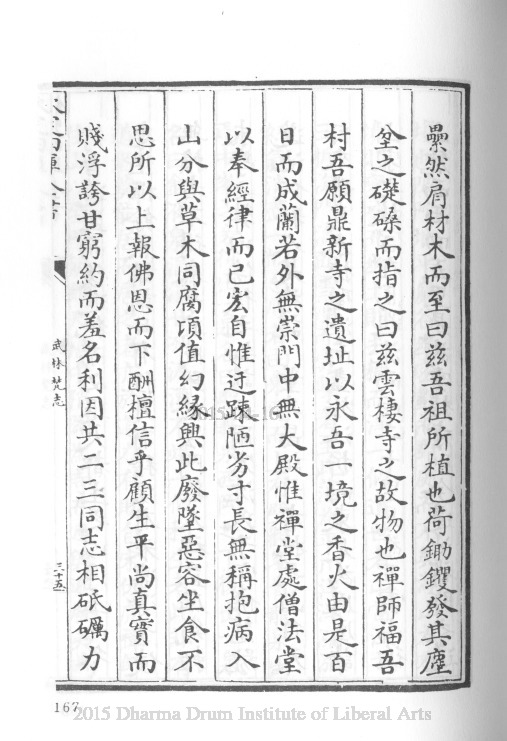 纍然肩材木而至曰茲吾祖所植也荷鋤钁發其塵
坌之礎磉而指之曰茲雲棲寺之故物也禪師福吾
村吾願鼎新寺之遺址以永吾一境之香火由是百
日而成蘭若外無崇門中無大殿惟禪堂處僧法堂
以奉經律而已宏自惟迂踈陋劣寸長無稱抱病入
山分與草木同腐頃值幻緣興此廢墜惡容坐食不
思所以上報佛恩而下酬檀信乎顧生平尚真實而
賤浮誇甘窮約而羞名利因共二三同志相砥礪力
武林梵志
三十五
167
2015 Dharma Drum Institute of Liberal Arts